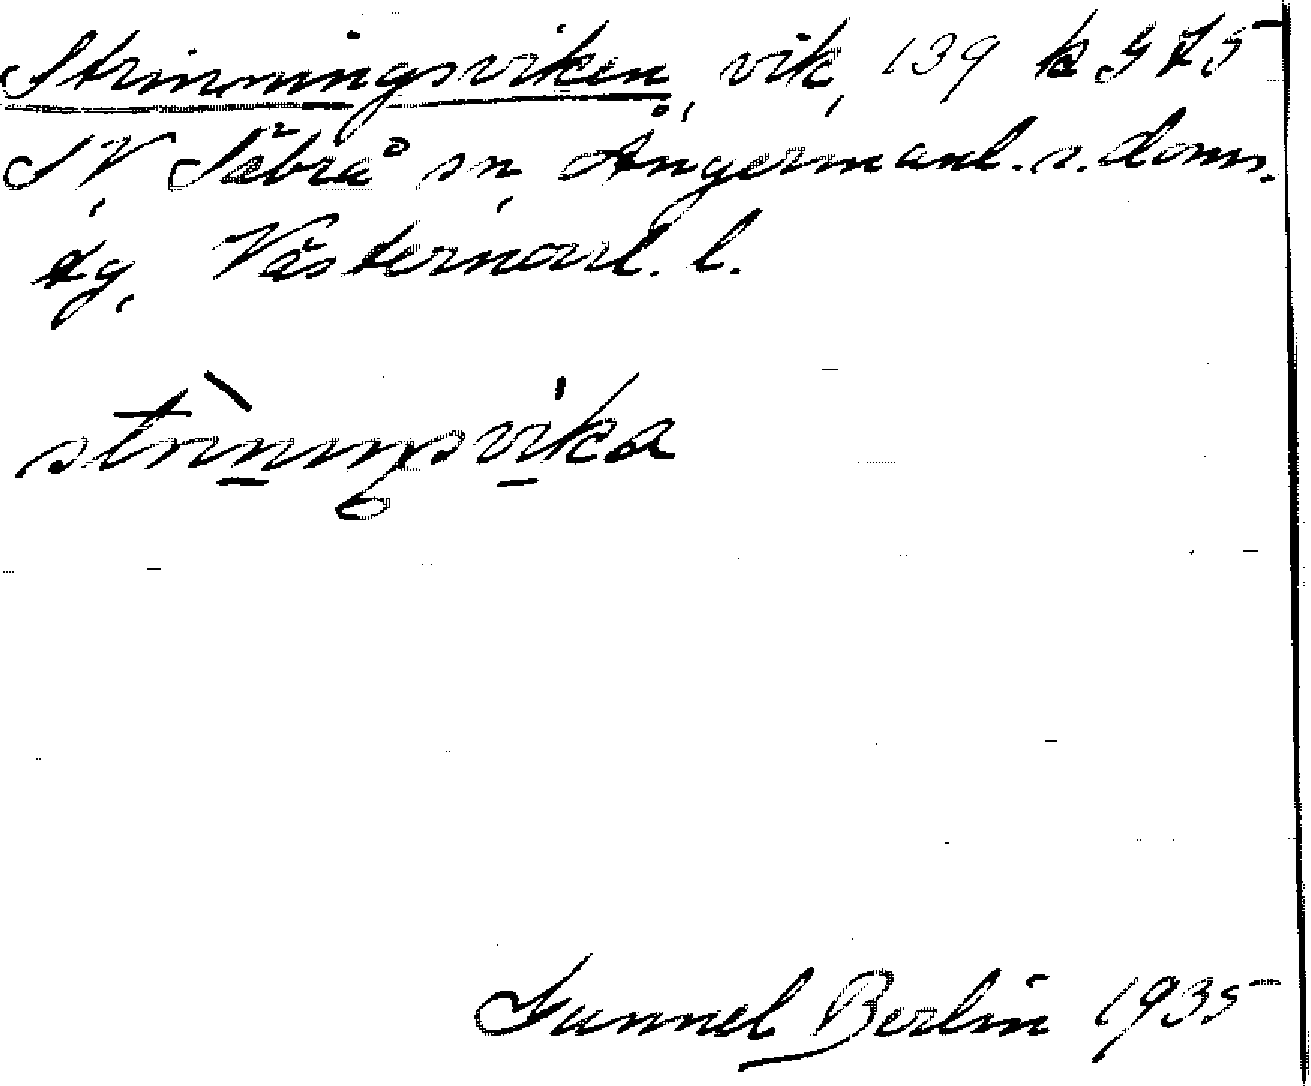 Strinningsviken, vik, 139 k 9 75
SV, Säbrå sn, Ångermanl. s. doms.
dg, Västernorrl. l.
strìniŋsvika
Gunnel Berlin 1935